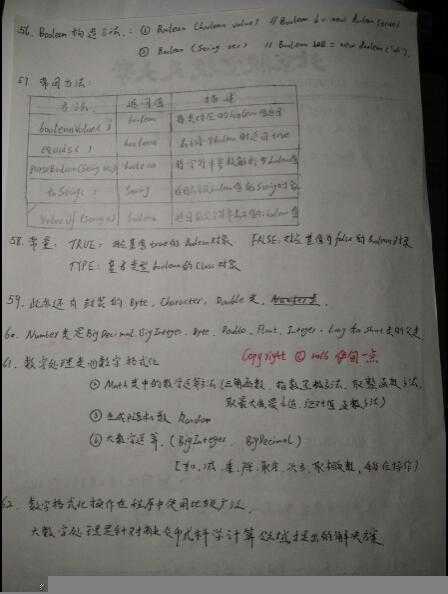 56. Boolean 构造方法: ① Boolean (boolean value) // Boolean b = new Boolean(true)
② Boolean (String str) // Boolean = new Boolean("ok");
57. 常用方法:
方法 返回值 描述
booleanValue() boolean 将其对应的boolean值返回
equals() boolean
parseBoolean(String s) boolean 将字符串参数解析为boolean值
toString() String
valueOf(String s) boolean
58. 常量: TRUE: 对应基值true的Boolean对象 FALSE: 对应基值为false的Boolean对象
TYPE: 基本类型boolean的Class对象
59. 此外还有封装的 Byte, Character, Double类, Number类.
60. Number类是BigDecimal, BigInteger, Byte, Double, Float, Integer, Long 和 Short类的父类
61. 数字处理类 ① 数字格式化 Copyright @ 2016
② Math类中的数学运算方法(三角函数, 指数函数方法, 取整函数方法,
取最大值最小值, 绝对值函数方法)
③ 生成随机数 Random
④ 大数字运算. (BigInteger, BigDecimal)
[加, 减, 乘, 除, 取余, 次方, 取相反数, 移位操作)
62. 数字格式化操作在程序中使用比较广泛
大数字处理是针对科学计算领域提出的解决方案